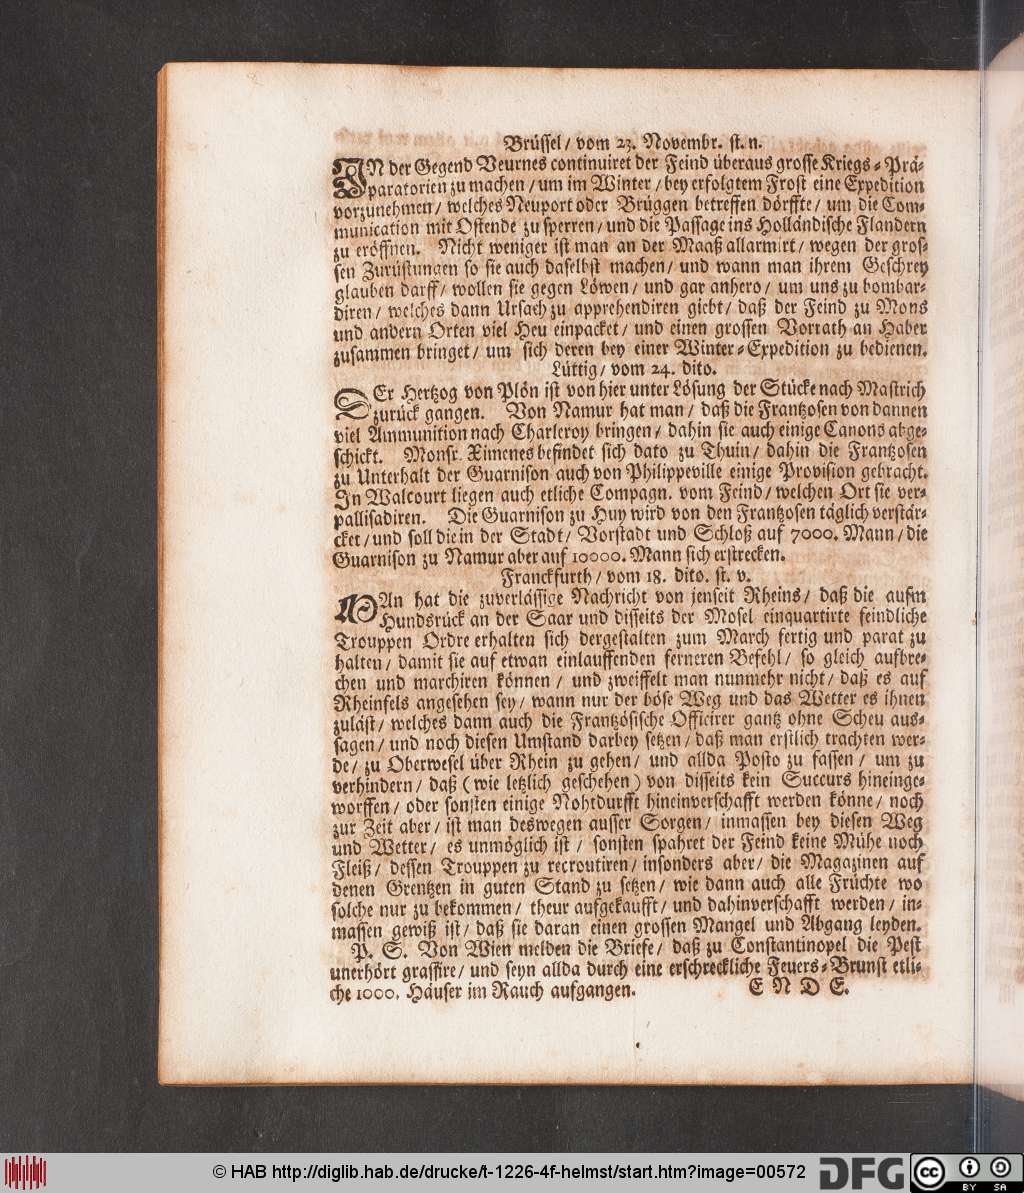 Brüssel / vom 23. Novembr. st. n.
IN der Gegend Veurnes continuiret der Feind überaus grosse Kriegs-Prä-
paratorien zu machen / um im Winter / bey erfolgtem Frost eine Expedition
vorzunehmen / welches Neuport oder Brüggen betreffen dörffte / um die Com-
munication mit Ostende zu sperren / und die Passage ins Holländische Flandern
zu eröffnen. Nicht weniger ist man an der Maaß allarmirt / wegen der gros-
sen Zurüstungen so sie auch daselbst machen / und wann man ihrem Geschrey
glauben darff / wollen sie gegen Löwen / und gar anhero / um uns zu bombar-
diren / welches dann Ursach zu apprehendiren giebt / daß der Feind zu Mons
und andern Orten viel Heu einpacket / und einen grossen Vorrath an Haber
zusammen bringet / um sich deren bey einer Winter-Expedition zu bedienen.
Lüttig / vom 24. dito.
DEr Hertzog von Plön ist von hier unter Lösung der Stücke nach Mastrich
zurück gangen. Von Namur hat man / daß die Frantzosen von dannen
viel Ammunition nach Charleroy bringen / dahin sie auch einige Canons abge-
schickt. Monsr. Ximenes befindet sich dato zu Thuin / dahin die Frantzosen
zu Unterhalt der Guarnison auch von Philippeville einige Provision gebracht.
In Walcourt liegen auch etliche Compagn. vom Feind / welchen Ort sie ver-
pallisadiren. Die Guarnison zu Huy wird von den Frantzosen täglich verstär-
cket / und soll die in der Stadt / Vorstadt und Schloß auf 7000. Mann / die
Guarnison zu Namur aber auf 10000. Mann sich erstrecken.
Franckfurth / vom 18. dito. st. v.
MAn hat die zuverlässige Nachricht von jenseit Rheins / daß die aufm
Hundsrück an der Saar und disseits der Mosel einquartirte feindliche
Trouppen Ordre erhalten sich dergestalten zum March fertig und parat zu
halten / damit sie auf etwan einlauffenden ferneren Befehl / so gleich aufbre-
chen und marchiren können / und zweiffelt man nunmehr nicht / daß es auf
Rheinfels angesehen sey / wann nur der böse Weg und das Wetter es ihnen
zuläst / welches dann auch die Frantzösische Officirer gantz ohne Scheu aus-
sagen / und noch diesen Umstand darbey setzen / daß man erstlich trachten wer-
de / zu Oberwesel über Rhein zu gehen / und allda Posto zu fassen / um zu
verhindern / daß (wie letzlich geschehen) von disseits kein Succurs hineinge-
worffen / oder sonsten einige Nohtdurfft hineinverschafft werden könne / noch
zur Zeit aber / ist man deswegen ausser Sorgen / inmassen bey diesen Weg
und Wetter / es unmöglich ist / sonsten spahret der Feind keine Mühe noch
Fleiß / dessen Trouppen zu recroutiren / insonders aber / die Magazinen auf
denen Grentzen in guten Stand zu setzen / wie dann auch alle Früchte wo
solche nur zu bekommen / theur aufgekaufft / und dahinverschafft werden / in-
massen gewiß ist / daß sie daran einen grossen Mangel und Abgang leyden.
P. S. Von Wien melden die Briefe / daß zu Constantinopel die Pest
unerhört grassire / und seyn allda durch eine erschreckliche Feuers-Brunst etli-
che 1000. Häuser im Rauch aufgangen. E N D E.
© HAB http://diglib.hab.de/drucke/t-1226-4f-helmst/start.htm?image=00572 DFG cc BY SA